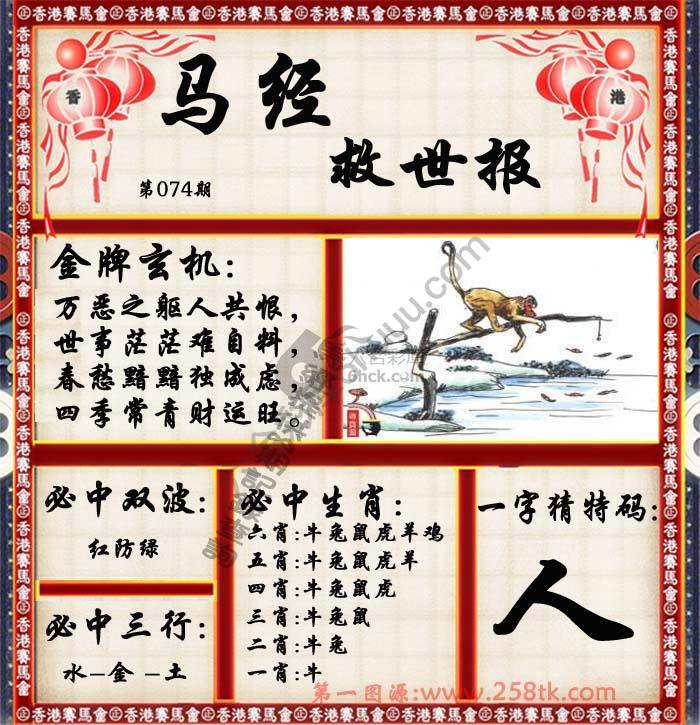 香 港
马经
救世报
第074期
金牌玄机:
万恶之躯人共恨，
世事茫茫难自料，
春愁黯黯独成虑，
四季常青财运旺。
必中双波:
红防绿
必中三行:
水-金-土
必中生肖:
六肖:牛兔鼠虎羊鸡
五肖:牛兔鼠虎羊
四肖:牛兔鼠虎
三肖:牛兔鼠
二肖:牛兔
一肖:牛
一字猜特码:
人
第一图源:www.258tk.com
香港賽馬會